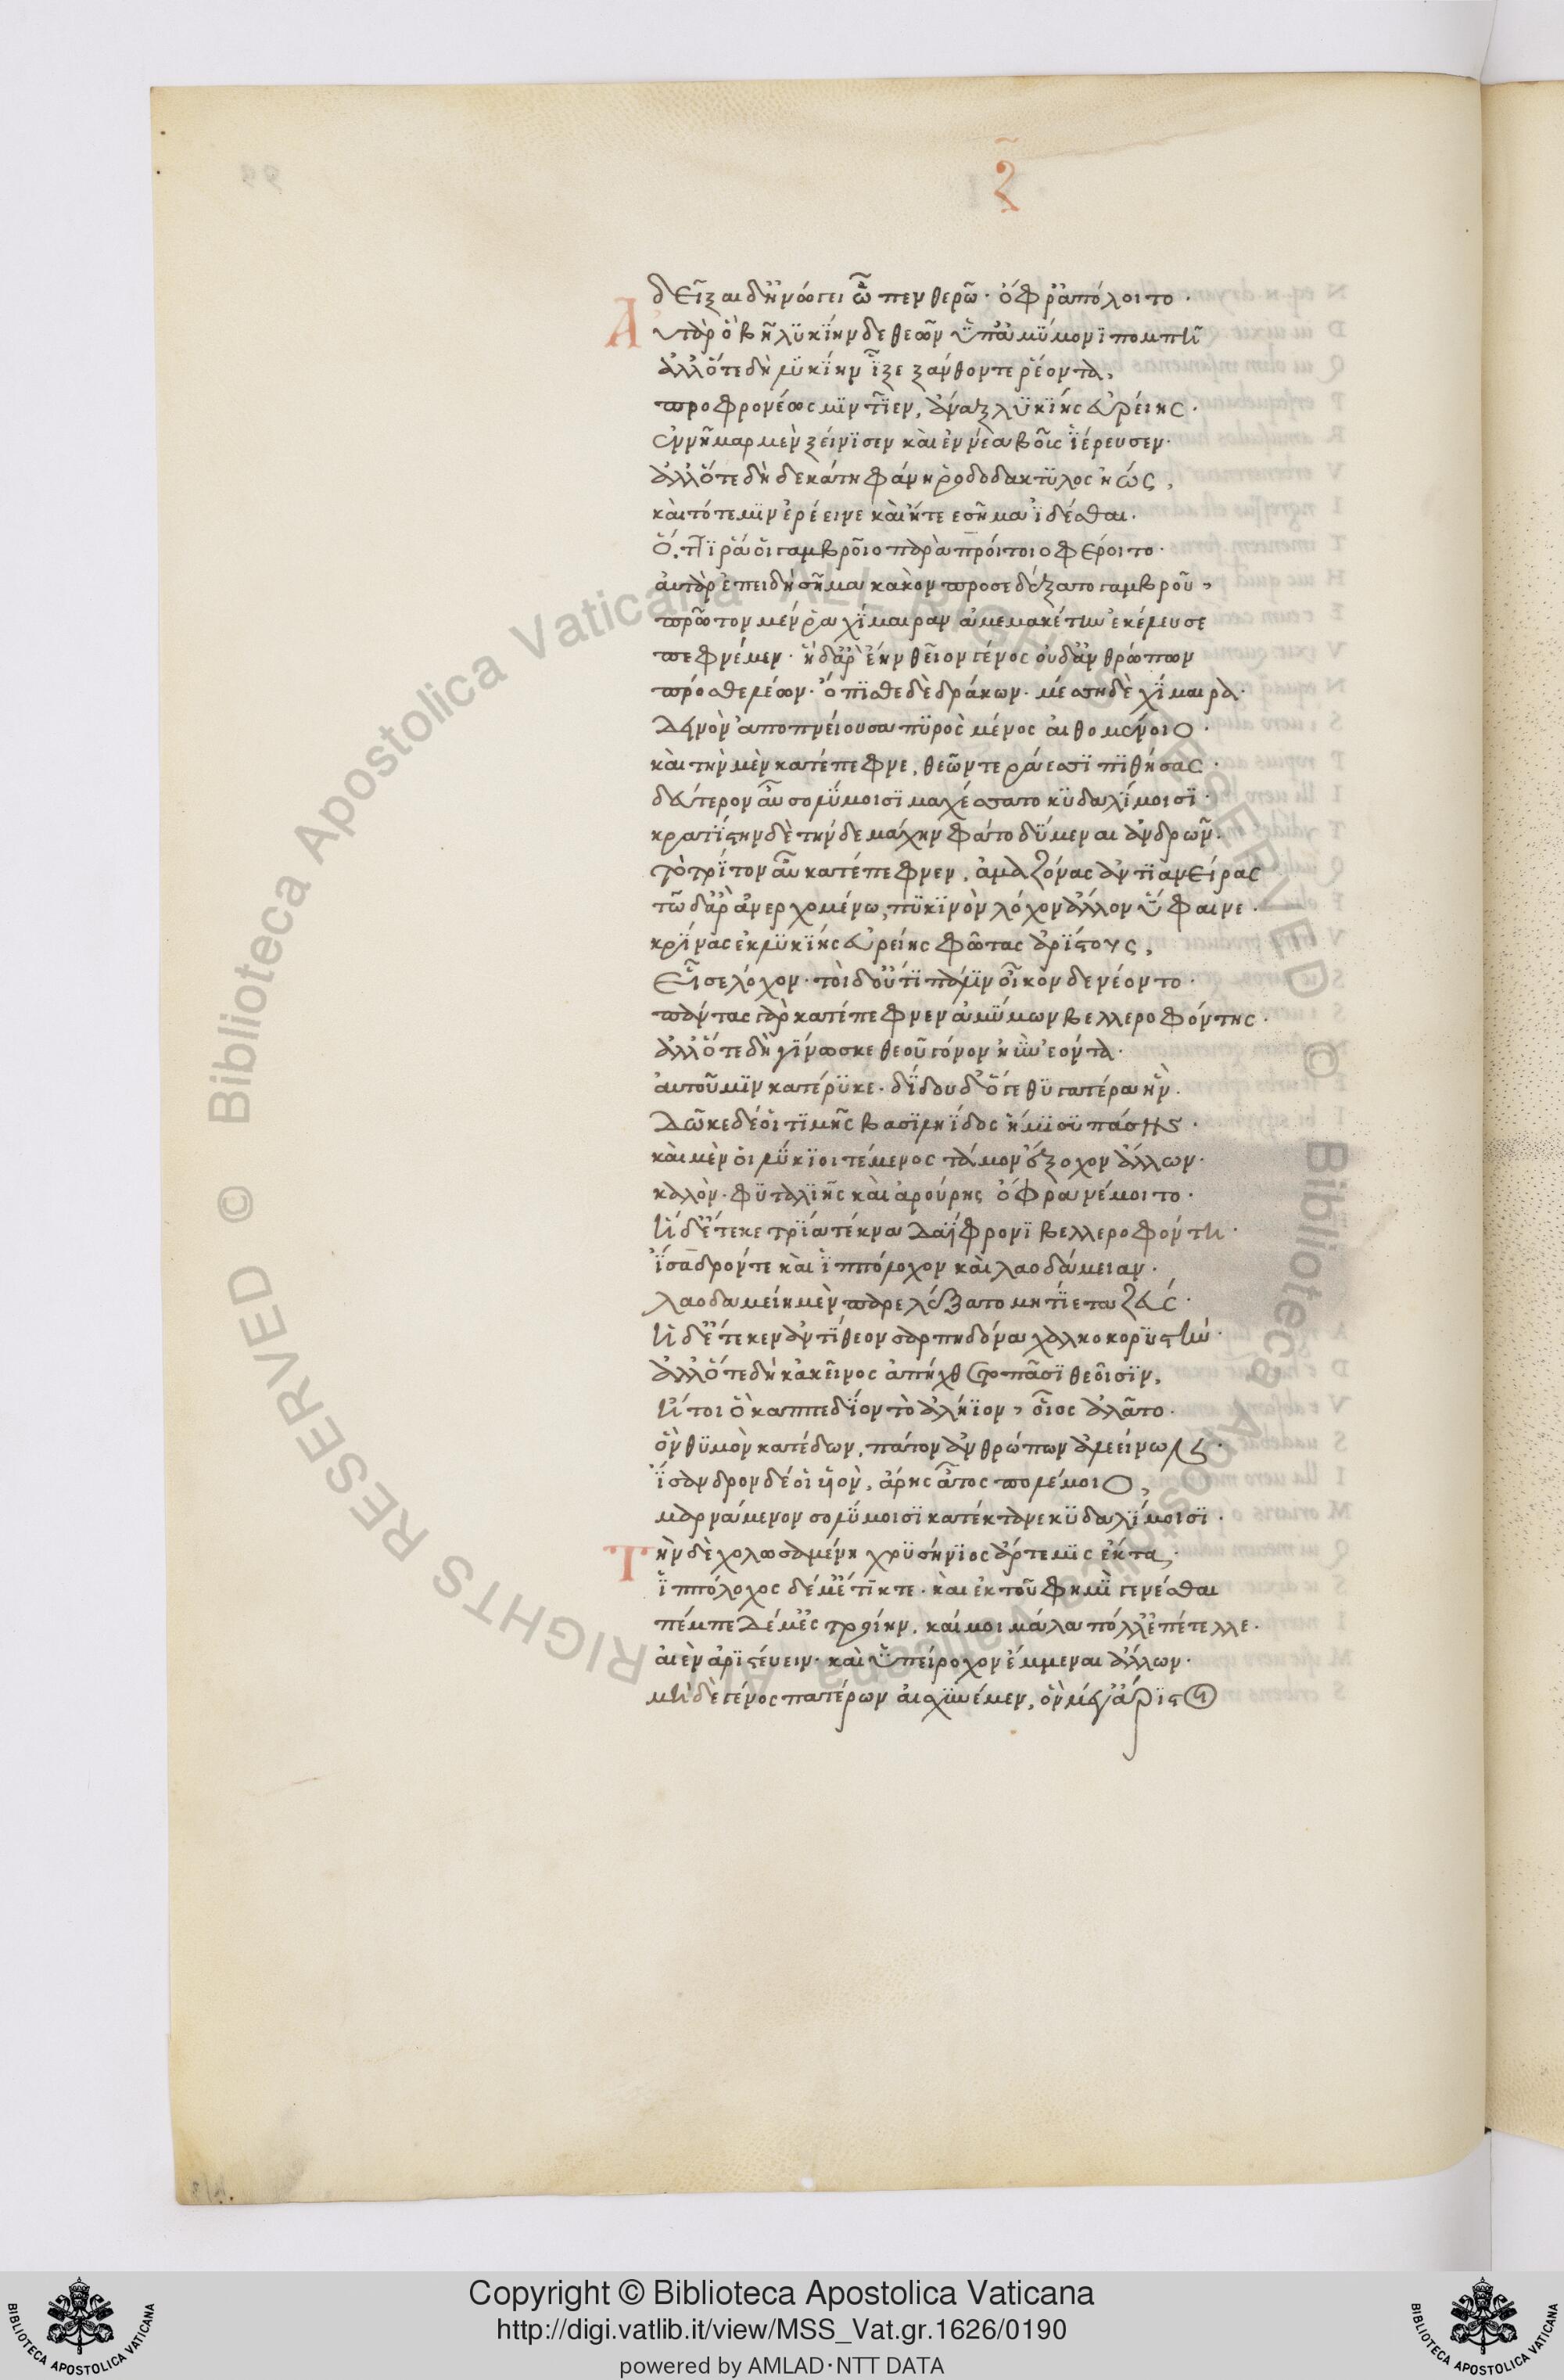 ζ̃
δεῖξαι δ' ἠνώγει ᾧ πενθερῶ· ὄφρ' ἀπόλοιτο·
Αὐτὰρ ὃ βῆ λϋκΐην δε θεῶν ὑπ' ἀμΰμονϊ πομπῆ
ἀλλ' ὅτε δὴ λϋκΐην ἷξε ξάνθον τε ῥέοντα,
προφρονέως μϊν τῖεν, ἄναξ λϋκΐης εὐρείης·
ἐννῆμαρ μὲν ξείνϊσεν καὶ ἐννέα βοῦς ἱέρευσεν·
ἀλλ' ὅτε δὴ δεκάτη φάνη ῥοδοδακτϋλος ἠώς,
καὶ τότε μϊν ἐρέεινε καὶ ἤτεε σῆμα ἰδέσθαι·
ὅ, τϊ ῥά οἱ γαμβροῖο παρὰ προίτοιο φέροιτο·
αὐτὰρ ἐπειδὴ σῆμα κακὸν προσεδέξατο γαμβροῦ,
πρῶτον μέν ῥα χΐμαιραν ἀμεμακέτην ἐκέλευσε
πεφνέμεν· ἡ δ' ἄρ' ἔην θεῖον γένος οὐδ' ἀνθρώπων
πρόσθε λέων· ὄπϊθε δὲ δράκων· μέσση δὲ χΐμαιρα·
δεινὸν ἀποπνείουσα πϋρὸς μένος αἰθομένοιο·
καὶ τὴν μὲν κατέπεφνε, θεῶν τεράεσσϊ πϊθήσας·
δεύτερον αὖ σολΰμοισϊ μαχέσσατο κϋδαλΐμοισϊ·
κρατΐστην δὲ τήν δε μάχην φάτο δΰμεναι ἀνδρῶν·
τὸ τρΐτον αὖ κατέπεφνεν, ἀμαζόνας ἀντϊανείρας
τῶ δ' ἄρ' ἀνερχομένω, πϋκϊνὸν λόχον ἄλλον ὕφαινε·
κρΐνας ἐκ λϋκΐης εὐρείης φῶτας ἀρΐστους,
εἷσε λόχον· τοὶ δ' οὔτϊ πάλϊν οἶκόν δε νέοντο·
πάντας γὰρ κατέπεφνεν ἀμΰμων βελλεροφόντης·
ἀλλ' ὅτε δὴ γΐνωσκε θεοῦ γόνον ἠῢν ἐόντα·
αὐτοῦ μϊν κατέρϋκε· δΐδου δ' ὅγε θϋγατέρα ἥν·
δῶκε δέ οἱ τϊμῆς βασϊληΐδος ἥμϊσϋ πάσης·
καὶ μὲν οἱ λΰκϊοι τέμενος τάμον ἔξοχον ἄλλων·
καλὸν· φϋταλϊῆς καὶ ἀρούρης ὄφρα νέμοιτο·
ἡ δ' ἔτεκε τρΐα τέκνα δαΐφρονϊ βελλεροφόντη·
ἴσανδρόν τε καὶ ἱππόλοχον καὶ λαοδάμειαν·
λαοδαμείη μὲν παρελέξατο μητΐετα ζεύς·
ἡ δ' ἔτεκεν ἀντΐθεον σαρπηδόνα χαλκοκορϋστήν·
ἀλλ' ὅτε δὴ κἀκεῖνος ἀπήχθετο πᾶσϊ θεοῖσϊν,
ἤτοι ὃ καππεδΐον τὸ ἀλήϊον, οἶος ἀλᾶτο·
ὃν θϋμὸν κατέδων, πάτον ἀνθρώπων ἀλεείνων·
ἴσανδρον δέ οἱ ϋἱὸν, ἄρης ἆτος πολέμοιο,
μαρνάμενον σολΰμοισϊ κατέκτανε κϋδαλΐμοισϊ·
Τὴν δὲ χολωσαμένη χρϋσήνϊος ἄρτεμϊς ἔκτα·
ἱππόλοχος δέ μ' ἔτϊκτε· καὶ ἐκ τοῦ φημὶ γενέσθαι
πέμπε δέ μ' ἐς τροίην, καί μοι μάλα πόλλ' ἐπέτελλε·
αἰὲν ἀρϊστεύειν· καὶ ὑπείροχον ἔμμεναι ἄλλων·
μηδὲ γένος πατέρων αἰσχϋνέμεν, ὃν μέγ' ἄρϊστοι
Copyright © Biblioteca Apostolica Vaticana
http://digi.vatlib.it/view/MSS_Vat.gr.1626/0190
powered by AMLAD·NTT DATA
BIBLIOTECA APOSTOLICA VATICANA
BIBLIOTECA APOSTOLICA VATICANA
© Biblioteca Apostolica Vaticana ALL RIGHTS RESERVED
© Biblioteca Apostolica Vaticana ALL RIGHTS RESERVED